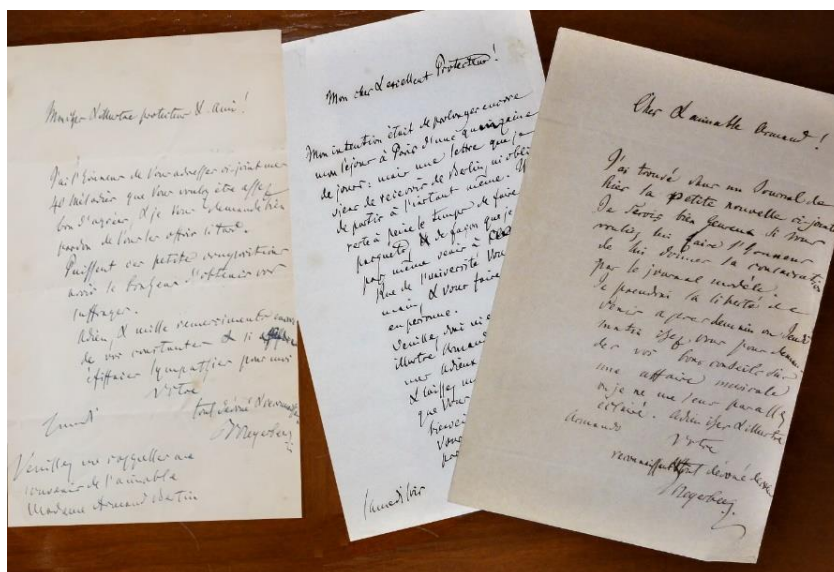 Mon cher & illustre protecteur & ami!
J'ai l'honneur de vous adresser ci-joint mes
40 Mélodies que vous voulez être assez
bon d'agréer, & je vous demande bien
pardon de vous les offrir si tard.
Puissent ces petites compositions
avoir le bonheur d'obtenir vos
suffrages.
Adieu, & mille remerciments encore
de vos constantes & si
efficaces sympathies pour moi
Votre
tout dévoué & reconnaissant
Meyerbeer
Lundi
Veuillez me rappeller au
souvenir de l'aimable
Madame Armand Bertin
Mon cher & excellent Protecteur!
Mon intention était de prolonger encore
mon séjour à Paris d'une quinzaine
de jours: mais une lettre que je
viens de recevoir de Berlin, m'oblige
de partir à l'instant même. Il
reste à peine le temps de faire
paquets, & de façon que je
pas même venir à
Rue de l'université vous
main, & vous faire
en personne.
Veuillez donc
illustre Armand
mes adieux
& laissez
que vous
bienv
vous
Samedi soir
Cher & aimable Armand!
J'ai trouvé dans un Journal de
hier la petite nouvelle ci-jointe.
Je serais bien heureux si vous
vouliez lui faire l'honneur
de lui donner la consécration
par le journal modèle.
Je prendrai la liberté de
venir après-demain ou Jeudi
matin chez vous pour
des vos bons conseils sur
une affaire musicale
où je ne me
éclairé. Adieu cher & illustre
Armand
Votre
reconnaissant & tout dévoué
Meyerbeer.